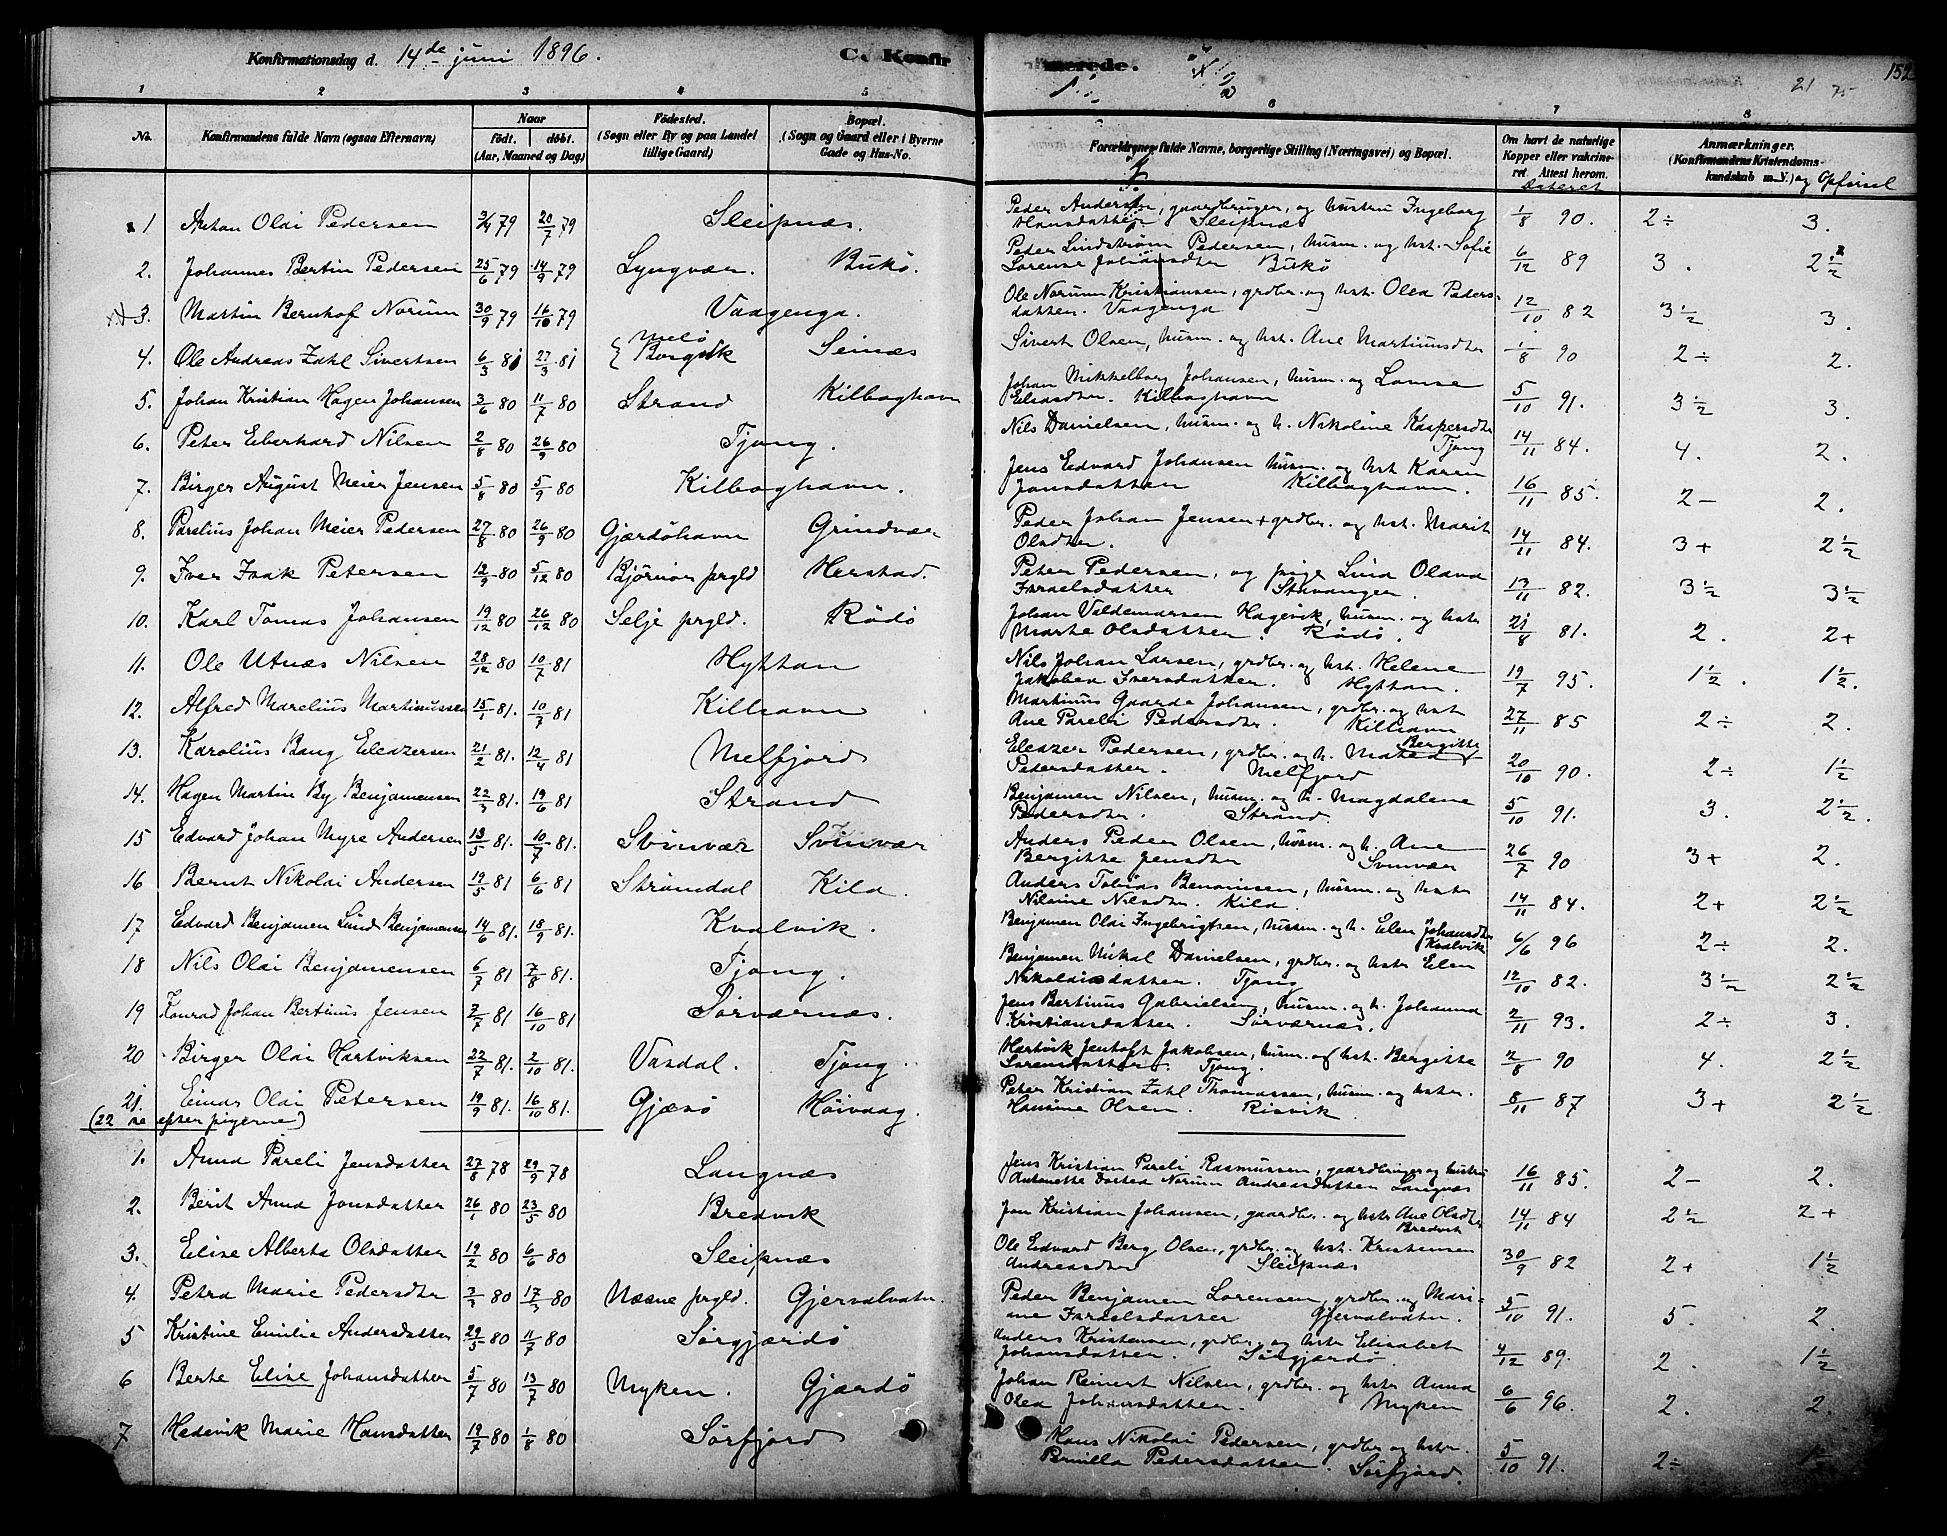 Konfirmationsdag d. 14de juni 1896. C. Konfirmerede. 152
21 75
1 2 3 4 5 6 7 8
No. Konfirmandens fulde Navn (ogsaa Efternavn) Naar født. døbt. (Aar, Maaned og Dag) Fødested. (Sogn eller By og paa Landet tillige Gaard) Bopæl. (Sogn og Gaard eller i Byerne Gade og Hus-No. Forældrenes fulde Navne, borgerlige Stilling (Næringsvei) og Bopæl. Om havt de naturlige Kopper eller vakcineret. Attest herom. Dateret Anmærkninger. (Konfirmandens Kristendomskundskab m. V.) og Opførsel
1 Anton Olai Pedersen 3/4 79 20/7 79 Sleipnæs. Peder Andersen, gaardbruger, og hustru Ingeborg Hansdatter Sleipnæs 1/8 90. 2÷ 3.
2. Johannes Bertin Pedersen 25/6 79 14/9 79 Lyngvær. Bukø. Peder Lindstrøm Pedersen, husm. og hst. Sofie Lorense Johansdter Bukø 6/12 89 3. 2½
3. Martin Bernhof Norum 30/9 79 16/10 79 Vaagenga. Ole Norum Kristiansen, grdbr. og hst. Olea Pedersdatter. Vaagenga 12/10 82 3½ 3.
4. Ole Andreas Zahl Sivertsen 6/3 81 27/3 81 { Melø Borgvik Seinæs Sivert Olsen, husm. og hst. Ane Martinusdtr 1/8 90 2÷ 2.
5. Johan Kristian Hagen Johansen 3/6 80 11/7 80 Strand Kilboghavn Johan Mikkelborg Johansen, husm. og Lovise Eliasdtr. Kilboghavn 5/10 91. 3½ 3.
6. Peter Eberhard Nilsen 2/8 80 26/9 80 Tjong. Nils Danielsen, husm. og h. Nikoline Kaspersdtr Tjong 14/11 84. 4. 2.
7. Birger August Meier Jensen 5/8 80 5/9 80 Kilboghavn. Jens Edvard Johansen husm. og hst Karen Jonsdatter Kilboghavn. 16/11 85. 2- 2.
8. Parelius Johan Meier Pedersen 27/8 80 26/9 80 Gjærdøhavn Grindvær Peder Johan Jensen + grdbr. og hst. Marit Olsdter. 14/11 84. 3+ 2½
9. Iver Isak Petersen 12/9 80 5/12 80 Bjørnør prgld Herstad. Peter Pedersen, og pige Lina Olava Israelsdatter Stavanger. 13/11 82. 3½ 3½
10. Karl Tomas Johansen 19/12 80 26/12 80 Selje prgld. Rødø Johan Valdemarsen Hagevik, husm. og hstr Marte Olsdatter. Rødø. 21/8 81. 2. 2+
11. Ole Utnæs Nilsen 28/12 80 10/7 81 Hyttan Nils Johan Larsen, grdbr. og hst. Helene Jakobea Iversdatter. Hyttan. 19/7 95. 1½. 1½.
12. Alfred Marelius Martinussen 15/1 81. 10/7 81 Kilhavn Martinus Gaarde Johansen, grdbr. og hst Ane Pareli Pedersdtr. Kilhavn 27/11 85 2÷ 2.
13. Karolius Bang Eleazersen 21/2 81. 12/4 81 Melfjord Eleazer Pedersen, grdbr. og h. Matea Bergitte Pedersdatter. Melfjord 20/10 90. 2÷ 1½
14. Hagen Martin By Benjamensen 22/3 81. 19/6 81 Strand Benjamen Nilsen, husm. og h. Magdalene Pedersdtr. Strand. 5/10 91. 3. 2½.
15 Edvard Johan Myre Andersen 13/5 81. 10/7 81. Svinvær Svinvær Anders Peder Olsen, husm. og h. Ane Bergitte Jensdtr Svinvær 26/7 90 3+ 2.
16 Bernt Nikolai Andersen 19/5 81 6/6 81 Strømdal Kila. Anders Tobias Benonisen, husm. og hstr Niline Nilsdtr. Kila. 14/11 84. 2+ 2½
17 Edvard Benjamen Lund Benjamensen 14/6 81. 18/9 81. Kvalvik. Benjamen Olai Ingebrigtsen, husm. og h. Elen Johansdtr Kvalvik 6/6 96 2÷ 2.
18 Nils Olai Benjamensen 6/7 81 7/8 81. Tjong. Benjamen Mikal Danielsen, grdbr. og hstr Elen Nikolaisdatter. Tjong 12/10 82. 3½ 2½
19 Konrad Johan Bertinus Jensen 2/7 81 16/10 81 Sørværnæs. Jens Bertinus Gabrielsen, husm. og h. Johanna Kristiansdatter. Sørværnæs. 2/11 93. 2÷ 3.
20 Birger Olai Hartviksen 22/7 81. 2/10 81. Vasdal. Tjong. Hartvik Jentoft Jakobsen, husm. og hst. Bergitte Lorensdatter. Tjong. 2/8 90 4. 2½
21. Einar Olai Petersen 19/9 81. 16/10 81. Gjæsø Høivaag. Peter Kristian Zahl Thomassen, husm. og hstr. Hansine Olsen. Risvik. 8/11 87 3+ 2½
(22 ne efter pigerne)
1. Anna Pareli Jensdatter 27/8 78 29/9 78 Langnæs Jens Kristian Pareli Rasmussen, gaardbruger og hustru Antonette Dortea Norum Andreasdatter Langnæs 16/11 85. 2- 2.
2. Berit Anna Jonsdatter 26/1 80 23/5 80 Bredvik Jon Kristian Johansen, gaardbr. og hstr Ane Olsdtr Bredvik 14/11 84 2½ 2+
3. Elise Alberta Olsdatter 19/2 80 6/6 80 Sleipnæs Ole Edvard Berg Olsen, grdbr. og hst. Kristensen Andreasdtr Sleipnæs 30/9 82 2+ 1½
4. Petra Marie Pedersdtr 3/3 80 17/3 80 Næsne prgld. Gjervalvatn. Peder Benjamen Lorensen, grdbr. og Marine Israelsdatter Gjervalvatn. 5/10 91. 5. 2.
5 Kristine Emilie Andersdatter 29/5 80 11/7 80 Sørgjærdø Anders Kristensen, grdbr. og hstr Elisabet Johansdatter. Sørgjærdø. 4/12 89. 2. 1½
6 Berte Elise Johansdatter 5/7 80 13/7 80 Myken. Gjærdø Johan Reinert Nilsen, grdbr. og hstr Anna Olea Johansdatter. Myken 6/6 96. 2. 2.
7 Hedevik Marie Hansdatter 19/7 80 1/8 80 Sørfjord Hans Nikolai Pedersen, grdbr og hstr. Pernilla Pedersdatter. Sørfjord. 5/10 91. 2÷